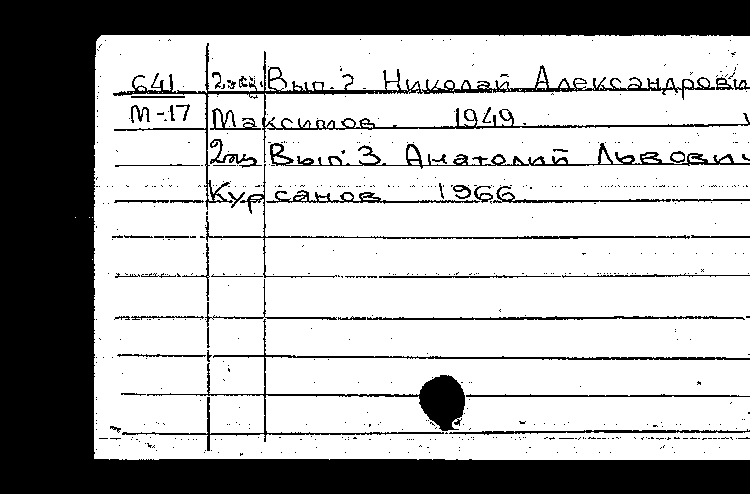 641 2 экз. Вып. 2. Николай Александрови
М-17 Максимов. 1949.
Вып. 3. Анатолий Львови
Курсанов. 1966.